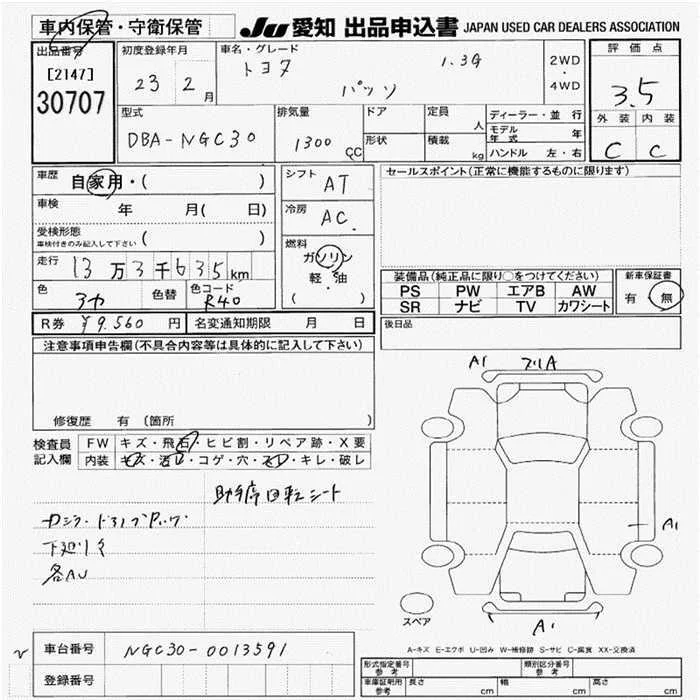 車内保管・守衛保管
JU 愛知 出品申込書 JAPAN USED CAR DEALERS ASSOCIATION
出品番号
[2147]
30707
初度登録年月
23 2月
車名・グレード
トヨタ パッソ 1.3G
2WD
・
4WD
評価点
3.5
外装 内装
C C
型式
DBA-NGC30
排気量
1300 CC
ドア
形状
定員 人
積載 kg
ディーラー・並行
モデル年式 年
ハンドル 左・右
車歴 自家用・( )
車検 年 月( 日)
受検形態
車検付きのみ記入して下さい ( )
走行 13万3千635km
色 色替 色コード R40
シフト AT
冷房 AC
燃料
ガソリン
軽・油
( )
セールスポイント(正常に機能するものに限ります)
装備品(純正品に限り○をつけてください)
PS PW エアB AW
SR ナビ TV カワシート
新車保証書
有・無
後日品
R券 ¥9,560円 名変通知期限 月 日
注意事項申告欄(不具合内容等は具体的に記入して下さい)
修復歴 有 (箇所 )
検査員記入欄
FW キズ・飛石・ヒビ割・リペア跡・X要
内装 キズ・汚れ・コゲ・穴・スレ・キレ・破レ
助手席回転シート
下廻りサ
各AU
A1
A1
A1
スペア
A-キズ E-エクボ U-凹み W-補修跡 S-サビ C-腐食 XX-交換済
車台番号 NGC30-0013591
登録番号
形式指定番号 参考
類別区分番号 参考
車庫証明用 参考 長さ cm 幅 cm 高さ cm